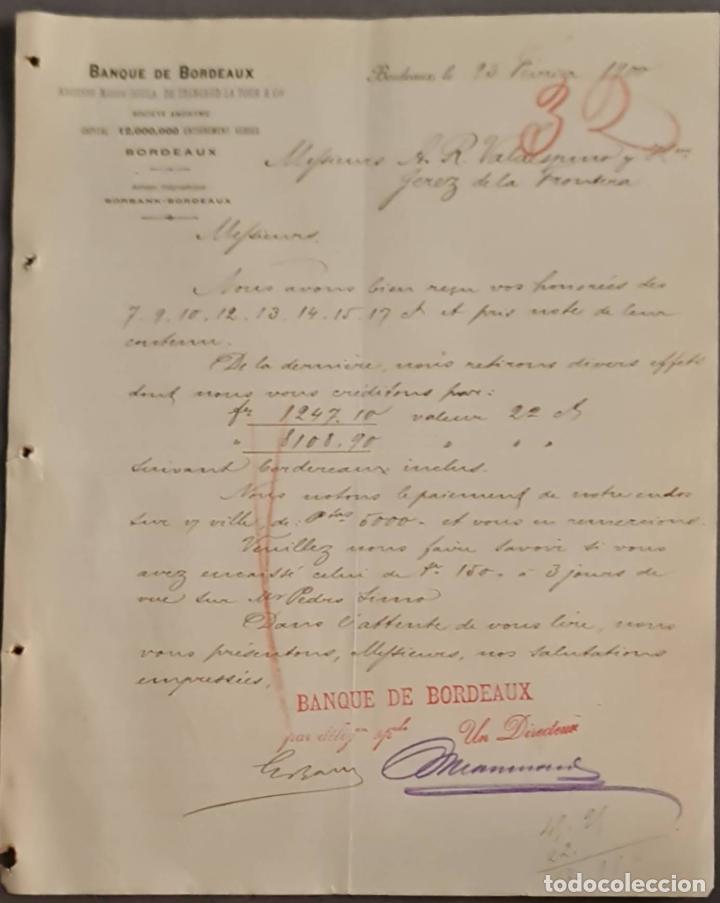 BANQUE DE BORDEAUX
ANCIENNE MAISON SOULA, DE TRINCAUD LA TOUR & Cie
SOCIÉTÉ ANONYME
CAPITAL 12,000,000 ENTIÈREMENT VERSÉS
BORDEAUX
Adresse télégraphique
BORBANK-BORDEAUX
Bordeaux, le 23 Février 1900
32
Messieurs A. R. Valdespino y
Jerez de la Frontera
Messieurs,
Nous avons bien reçu vos honorées des
7. 9. 10. 12. 13. 14. 15. 17 et et pris note de leur
contenu.
De la dernière, nous retirons divers effets
dont nous vous créditons par:
fr 1247.10 valeur 22 ct
" 8108.90 " " "
suivant bordereaux inclus.
Nous notons le paiement de notre endos
sur v/ ville, de: Ptas 5000.- et vous en remercions.
Veuillez nous faire savoir si vous
avez encaissé celui de 150.- à 3 jours de
vue sur Mr Pedro Simo
Dans l'attente de vous lire, nous
vous présentons, Messieurs, nos salutations
empressées.
BANQUE DE BORDEAUX
par délégon sple Un Directeur
todocoleccion.net